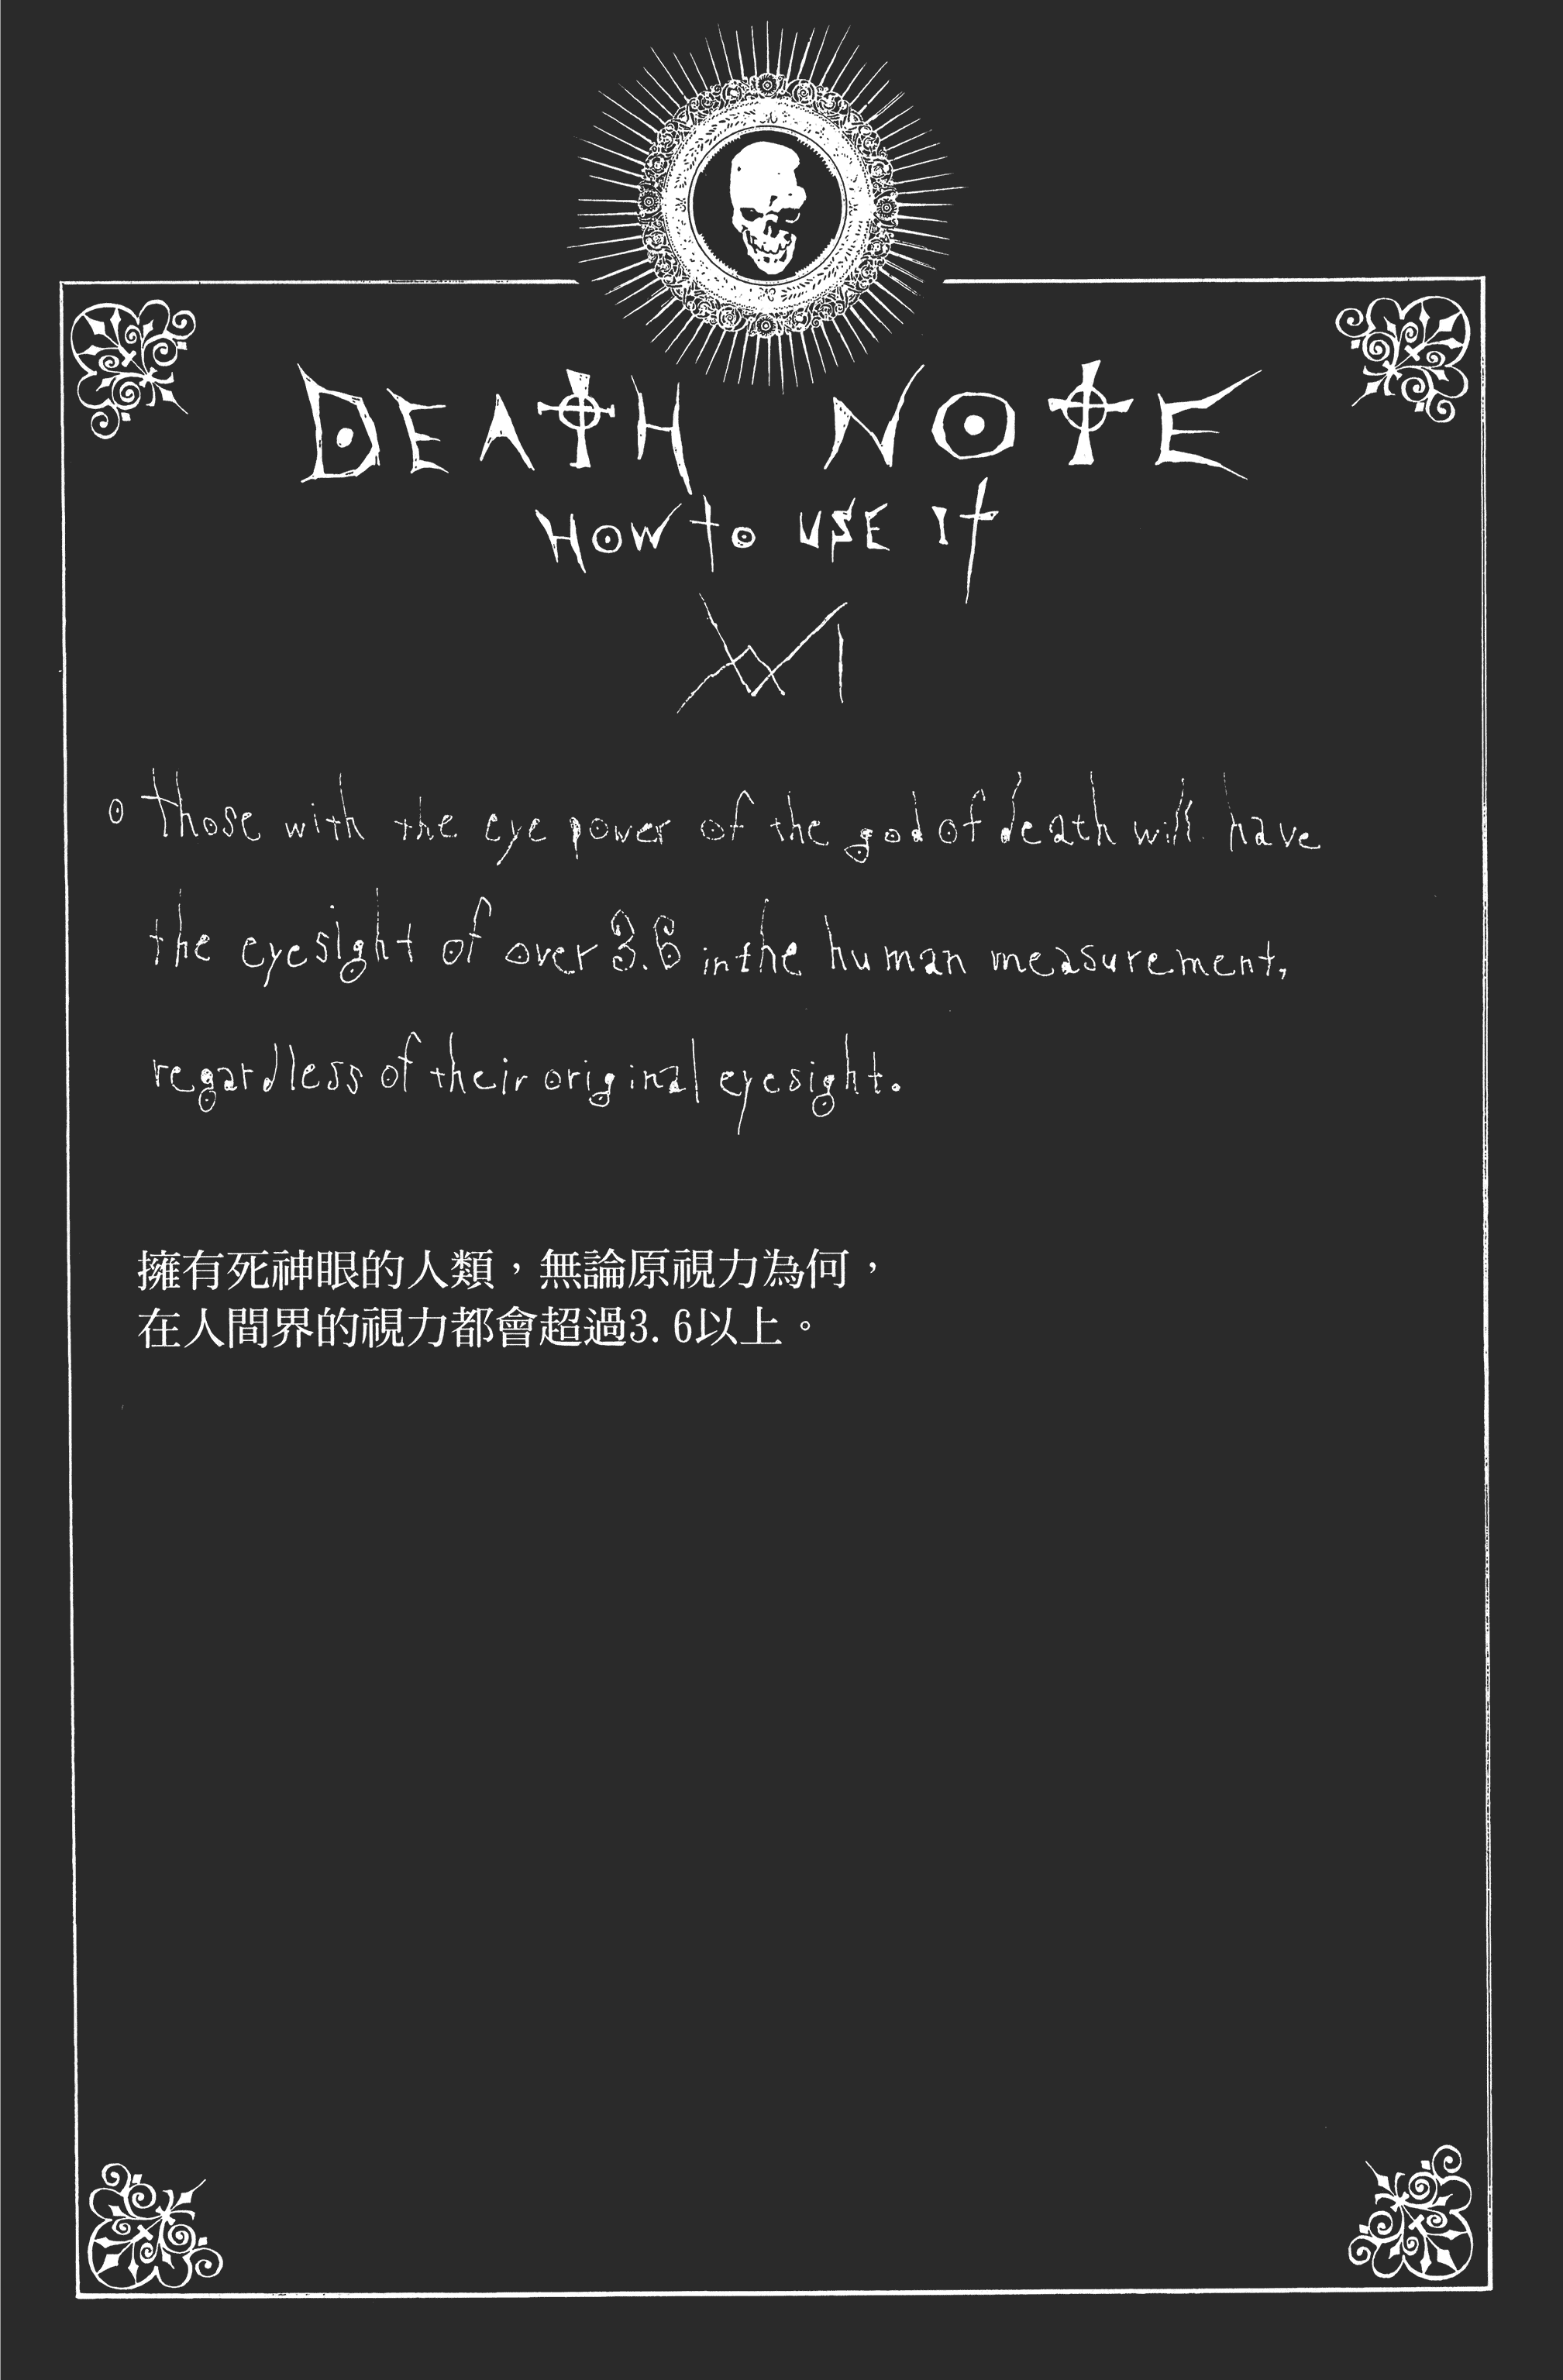 DEATH NOTE
HOW to USE It
XVI
o those with the eye power of the god of death will have
the eyesight of over 3.6 in the human measurement,
regardless of their original eyesight.
擁有死神眼的人類，無論原視力為何，
在人間界的視力都會超過3.6以上。